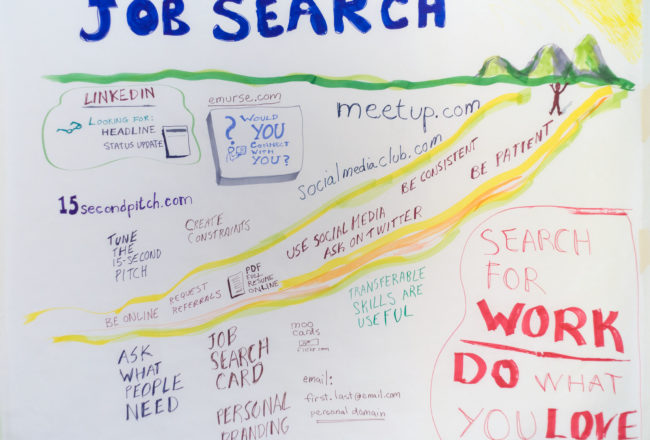 JOB SEARCH
LINKEDIN
LOOKING FOR:
HEADLINE
STATUS UPDATE
emurse.com
?
WOULD
YOU
CONNECT
WITH
YOU?
meetup.com
socialmediaclub.com
BE CONSISTENT
BE PATIENT
15secondpitch.com
TUNE
THE
15-SECOND
PITCH
CREATE
CONSTRAINTS
USE SOCIAL MEDIA
ASK ON TWITTER
BE ONLINE
REQUEST
REFERRALS
PDF
FULL
RESUME
ONLINE
TRANSFERABLE
SKILLS ARE
USEFUL
ASK
WHAT
PEOPLE
NEED
JOB
SEARCH
CARD
PERSONAL
BRANDING
moo
cards
flickr.com
email:
first.last@email.com
personal domain
SEARCH
FOR
WORK
DO WHAT
YOU LOVE